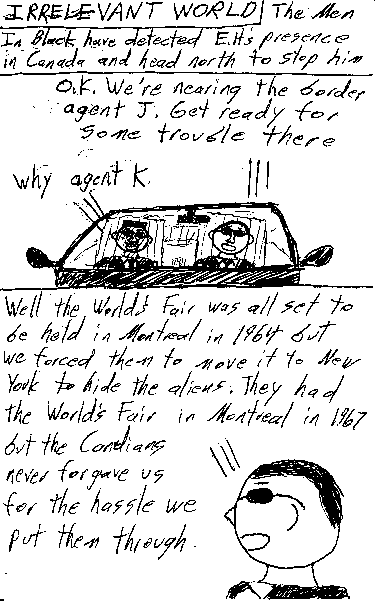 IRRELEVANT WORLD The Men
In Black have detected E.H's presence
in Canada and head north to stop him
O.K. We're nearing the border
agent J. Get ready for
some trouble there
why agent K.
Well the World's Fair was all set to
be held in Montreal in 1964 but
we forced them to move it to New
York to hide the aliens. They had
the World's Fair in Montreal in 1967
but the Candians
never forgave us
for the hassle we
put them through.